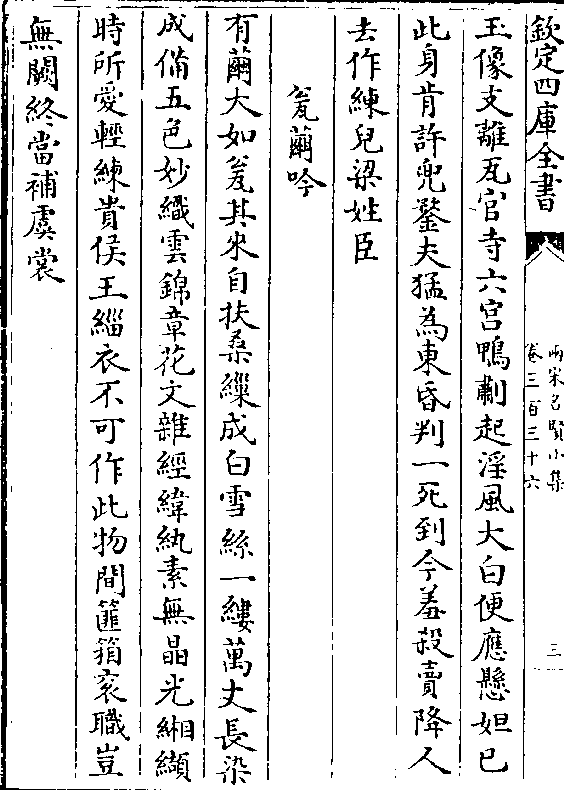 欽定四庫全書
兩宋名賢小集
卷三百三十六
三
玉像支離瓦官寺六宫鴨劚起淫風大白便應懸妲已
此身肯許兜鍪夫猛為東昏判一死到今羞殺賣降人
去作練兒梁姓臣
瓮繭吟
有繭大如瓮其來自扶桑繅成白雪絲一縷萬丈長染
成備五色妙織雲錦章花文雜經緯紈素無晶光緗纈
時所愛輕練貴侯王緇衣不可作此物間篚箱衮職豈
無闕終當補虞裳